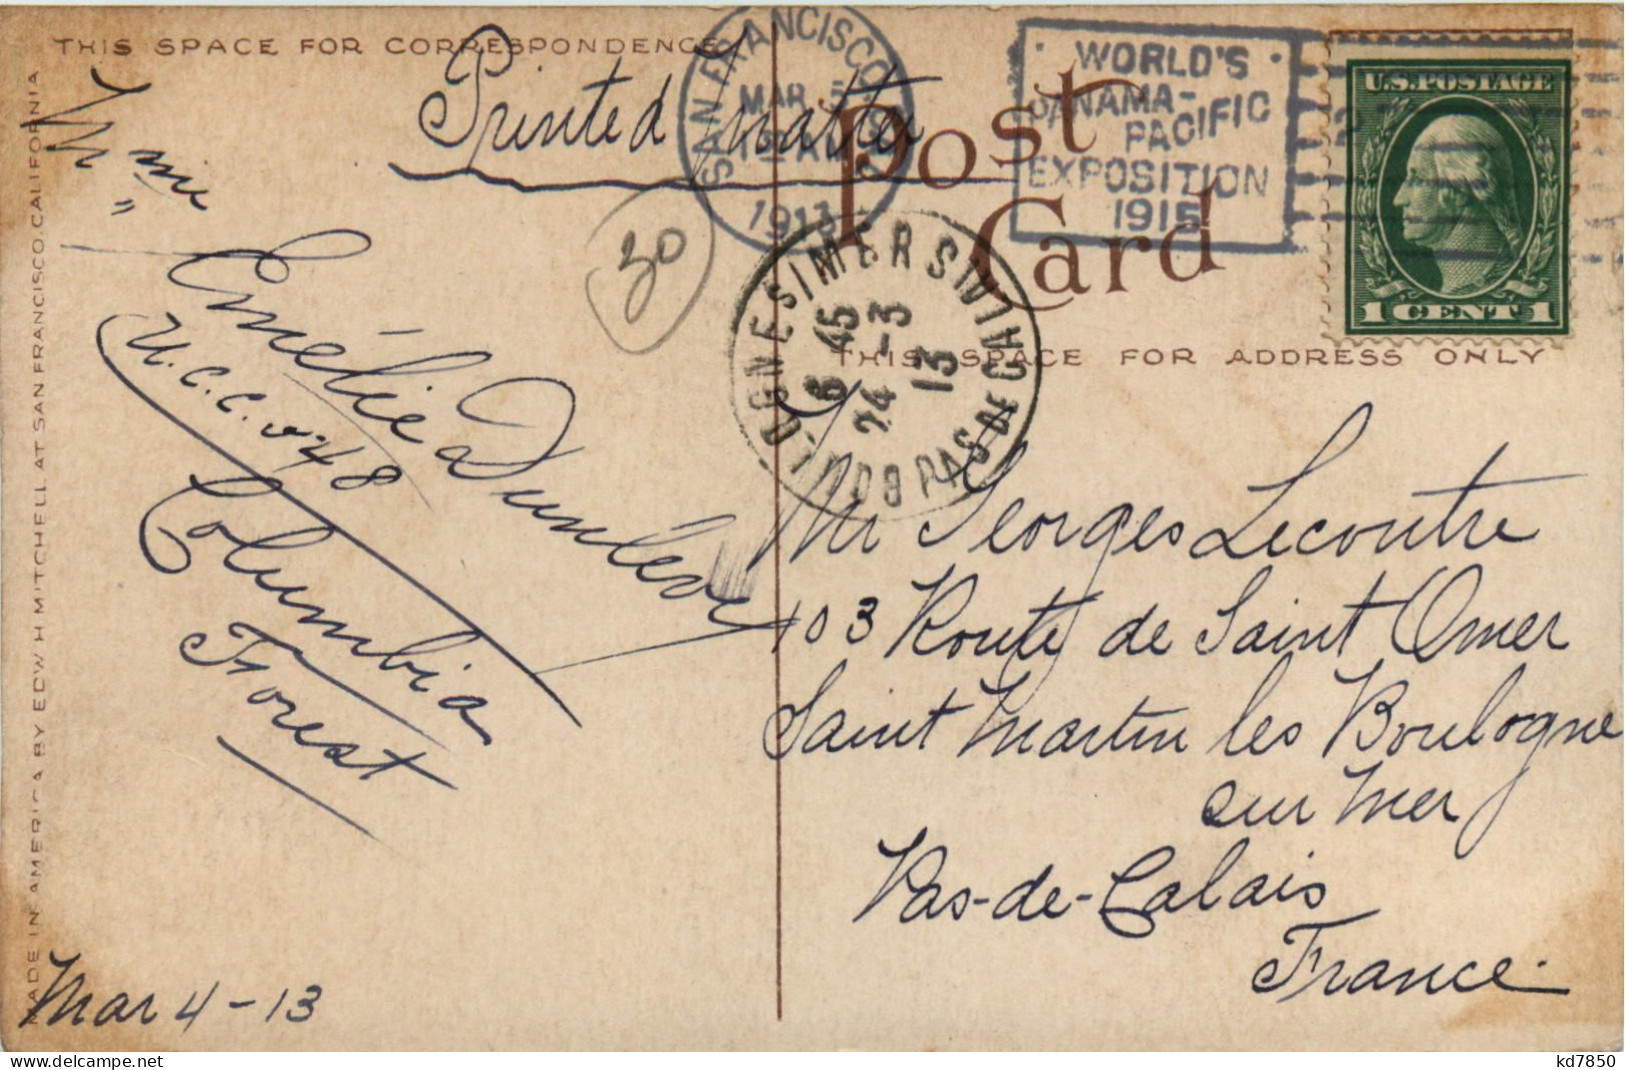 THIS SPACE FOR CORRESPONDENCE
Printed Matter
SAN FRANCISCO
MAR 5
12 AM
1913
WORLD'S
PANAMA-
PACIFIC
EXPOSITION
1915
U.S. POSTAGE
1 CENT 1
Post
Card
THIS SPACE FOR ADDRESS ONLY
30
BOULOGNE SI MER
6 45
24 -3
13
PAS DE CALAIS
Mme
Emélie Dunlevy
U.C.C. 548
Columbia
Forest
Mar 4-13
Mr Georges Lecoutre
103 Route de Saint Omer
Saint Martin les Boulogne
sur Mer
Pas-de-Calais
France.
MADE IN AMERICA BY EDW H MITCHELL AT SAN FRANCISCO, CALIFORNIA
kd7850